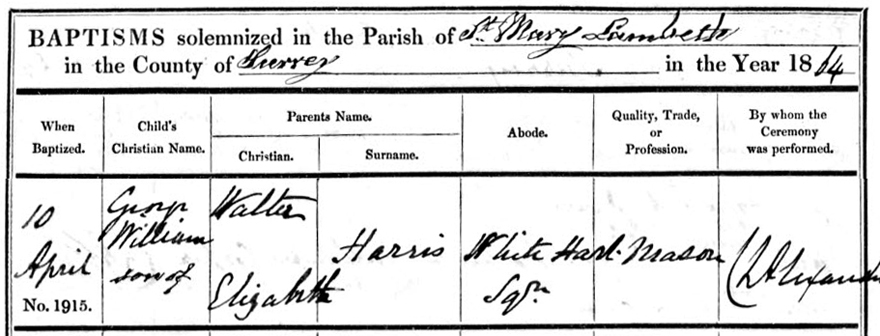 BAPTISMS solemnized in the Parish of St. Mary Lambeth
in the County of Surrey in the Year 1864
When Baptized.
Child's Christian Name.
Parents Name.
Christian.
Surname.
Abode.
Quality, Trade, or Profession.
By whom the Ceremony was performed.
10 April
No. 1915.
George William son of
Walter
Elizabeth
Harris
White Hart Sqre
Mason
Alexander